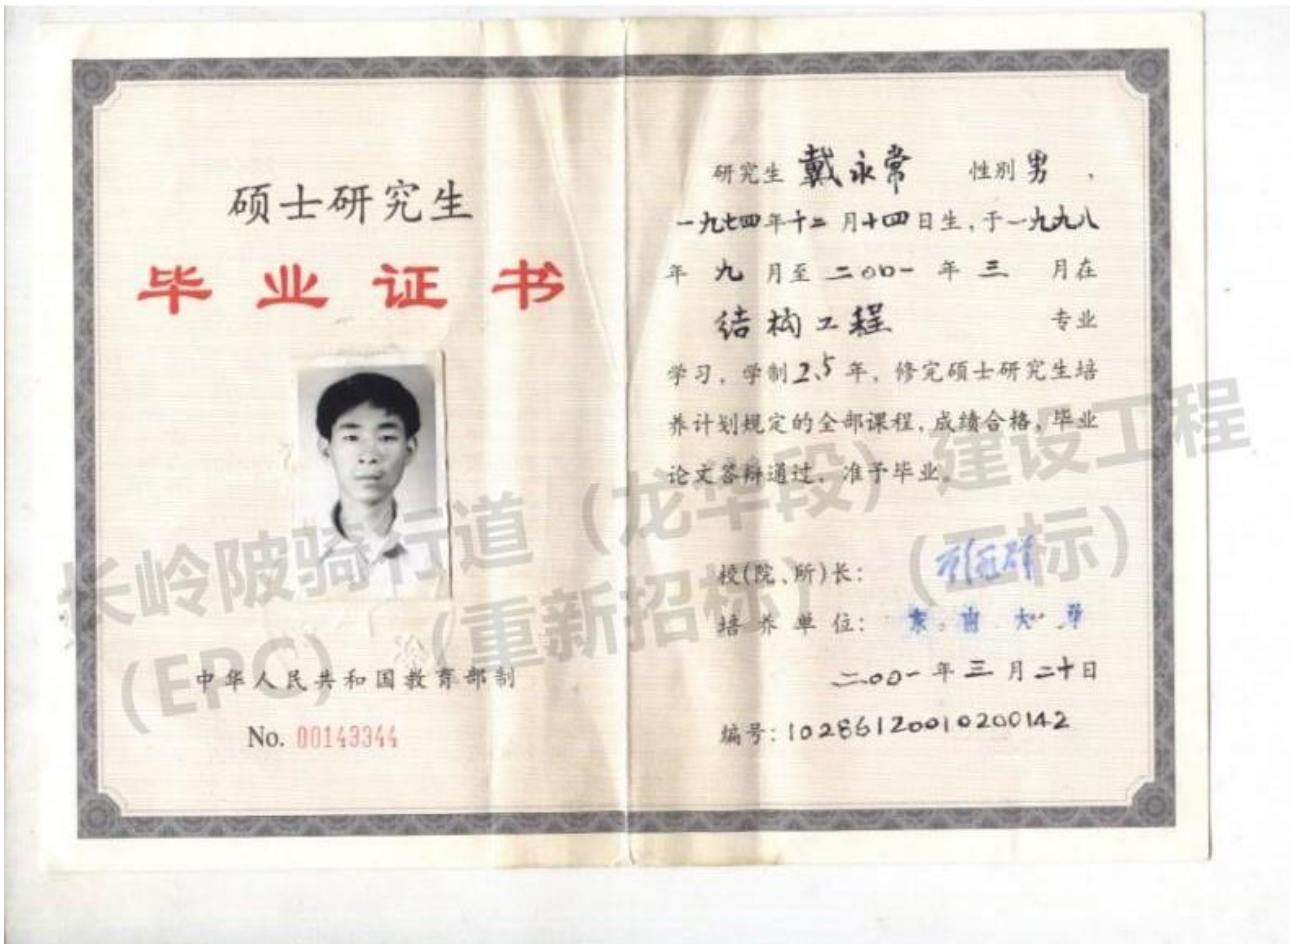 硕士研究生
毕业证书
中华人民共和国教育部制
No. 00143344
研究生 戴永常 性别 男 ,
一九七四年十二月十四日生,于一九九八
年 九 月至 二〇〇一 年 三 月在
结构工程 专业
学习,学制2.5年,修完硕士研究生培
养计划规定的全部课程,成绩合格,毕业
论文答辩通过,准予毕业。
校(院、所)长:
培养单位: 东南大学
二〇〇一年三月二十日
编号:10286120010200142
长岭陂骑行道(龙华段)建设工程
(EPC)(重新招标)(三标)